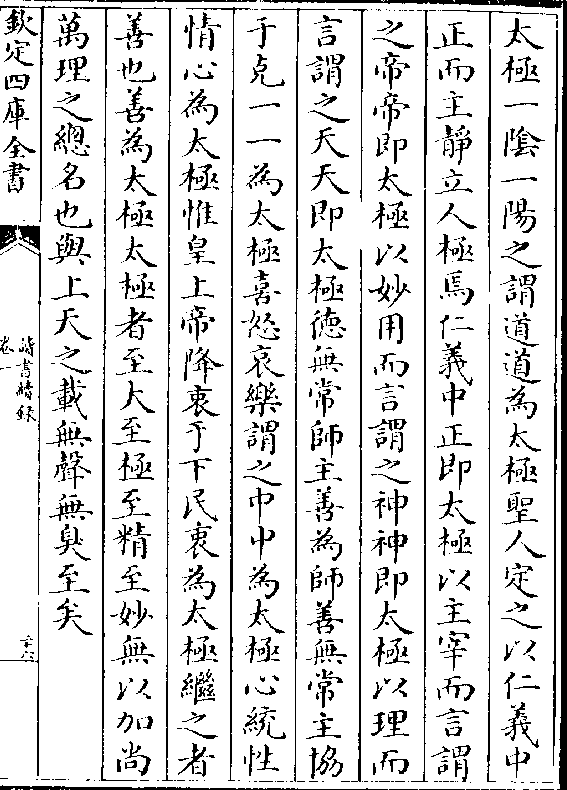 太極一陰一陽之謂道道為太極聖人定之以仁義中
正而主靜立人極焉仁義中正即太極以主宰而言謂
之帝帝即太極以妙用而言謂之神神即太極以理而
言謂之天天即太極德無常師主善為師善無常主協
于克一一為太極喜怒哀樂謂之中中為太極心統性
情心為太極惟皇上帝降衷于下民衷為太極繼之者
善也善為太極太極者至大至極至精至妙無以加尚
萬理之總名也與上天之載無聲無臭至矣
欽定四庫全書
讀書續錄
卷一